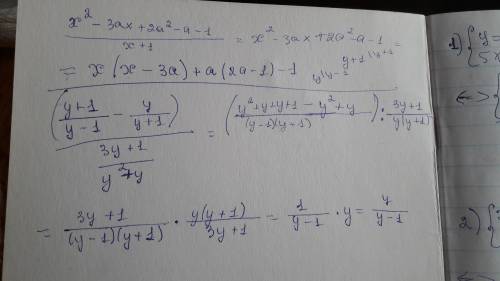 x² - 3ax + 2a² - a - 1 / x + 1 = x² - 3ax + 2a² - a - 1 =
= x (x - 3a) + a (2a - 1) - 1
y+1 \y+1
y\y-1
((y+1)/(y-1) - y/(y+1)) / ((3y+1)/(y²+y)) = ((y²+y+y+1 - y²+y)/((y-1)(y+1))) : (3y+1)/(y(y+1))
= (3y+1)/((y-1)(y+1)) · (y(y+1))/(3y+1) = 1/(y-1) · y = y/(y-1)
1) { y =
5x
<=> {
2) {